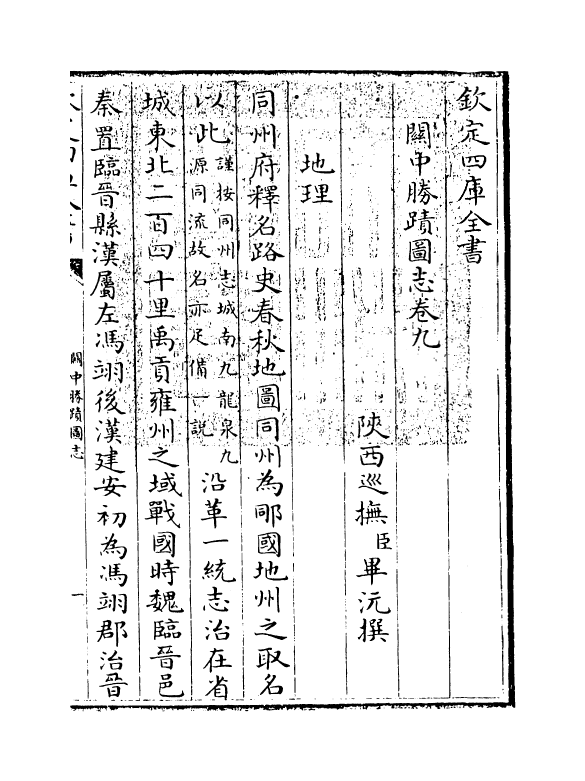 欽定四庫全書
關中勝蹟圖志卷九
陝西巡撫臣畢沅撰
地理
同州府釋名路史春秋地圖同州為郮國地州之取名
以此謹按同州志城南九龍泉九源同流故名亦足備一說沿革一統志治在省
城東北二百四十里禹貢雍州之域戰國時魏臨晉邑
秦置臨晉縣漢屬左馮翊後漢建安初為馮翊郡治晉
關中勝蹟圖志
一